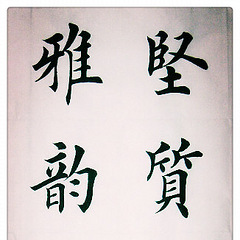 堅質
雅韵